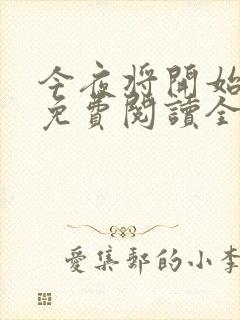 今夜将開始
免費閱讀全
愛集郵的小李